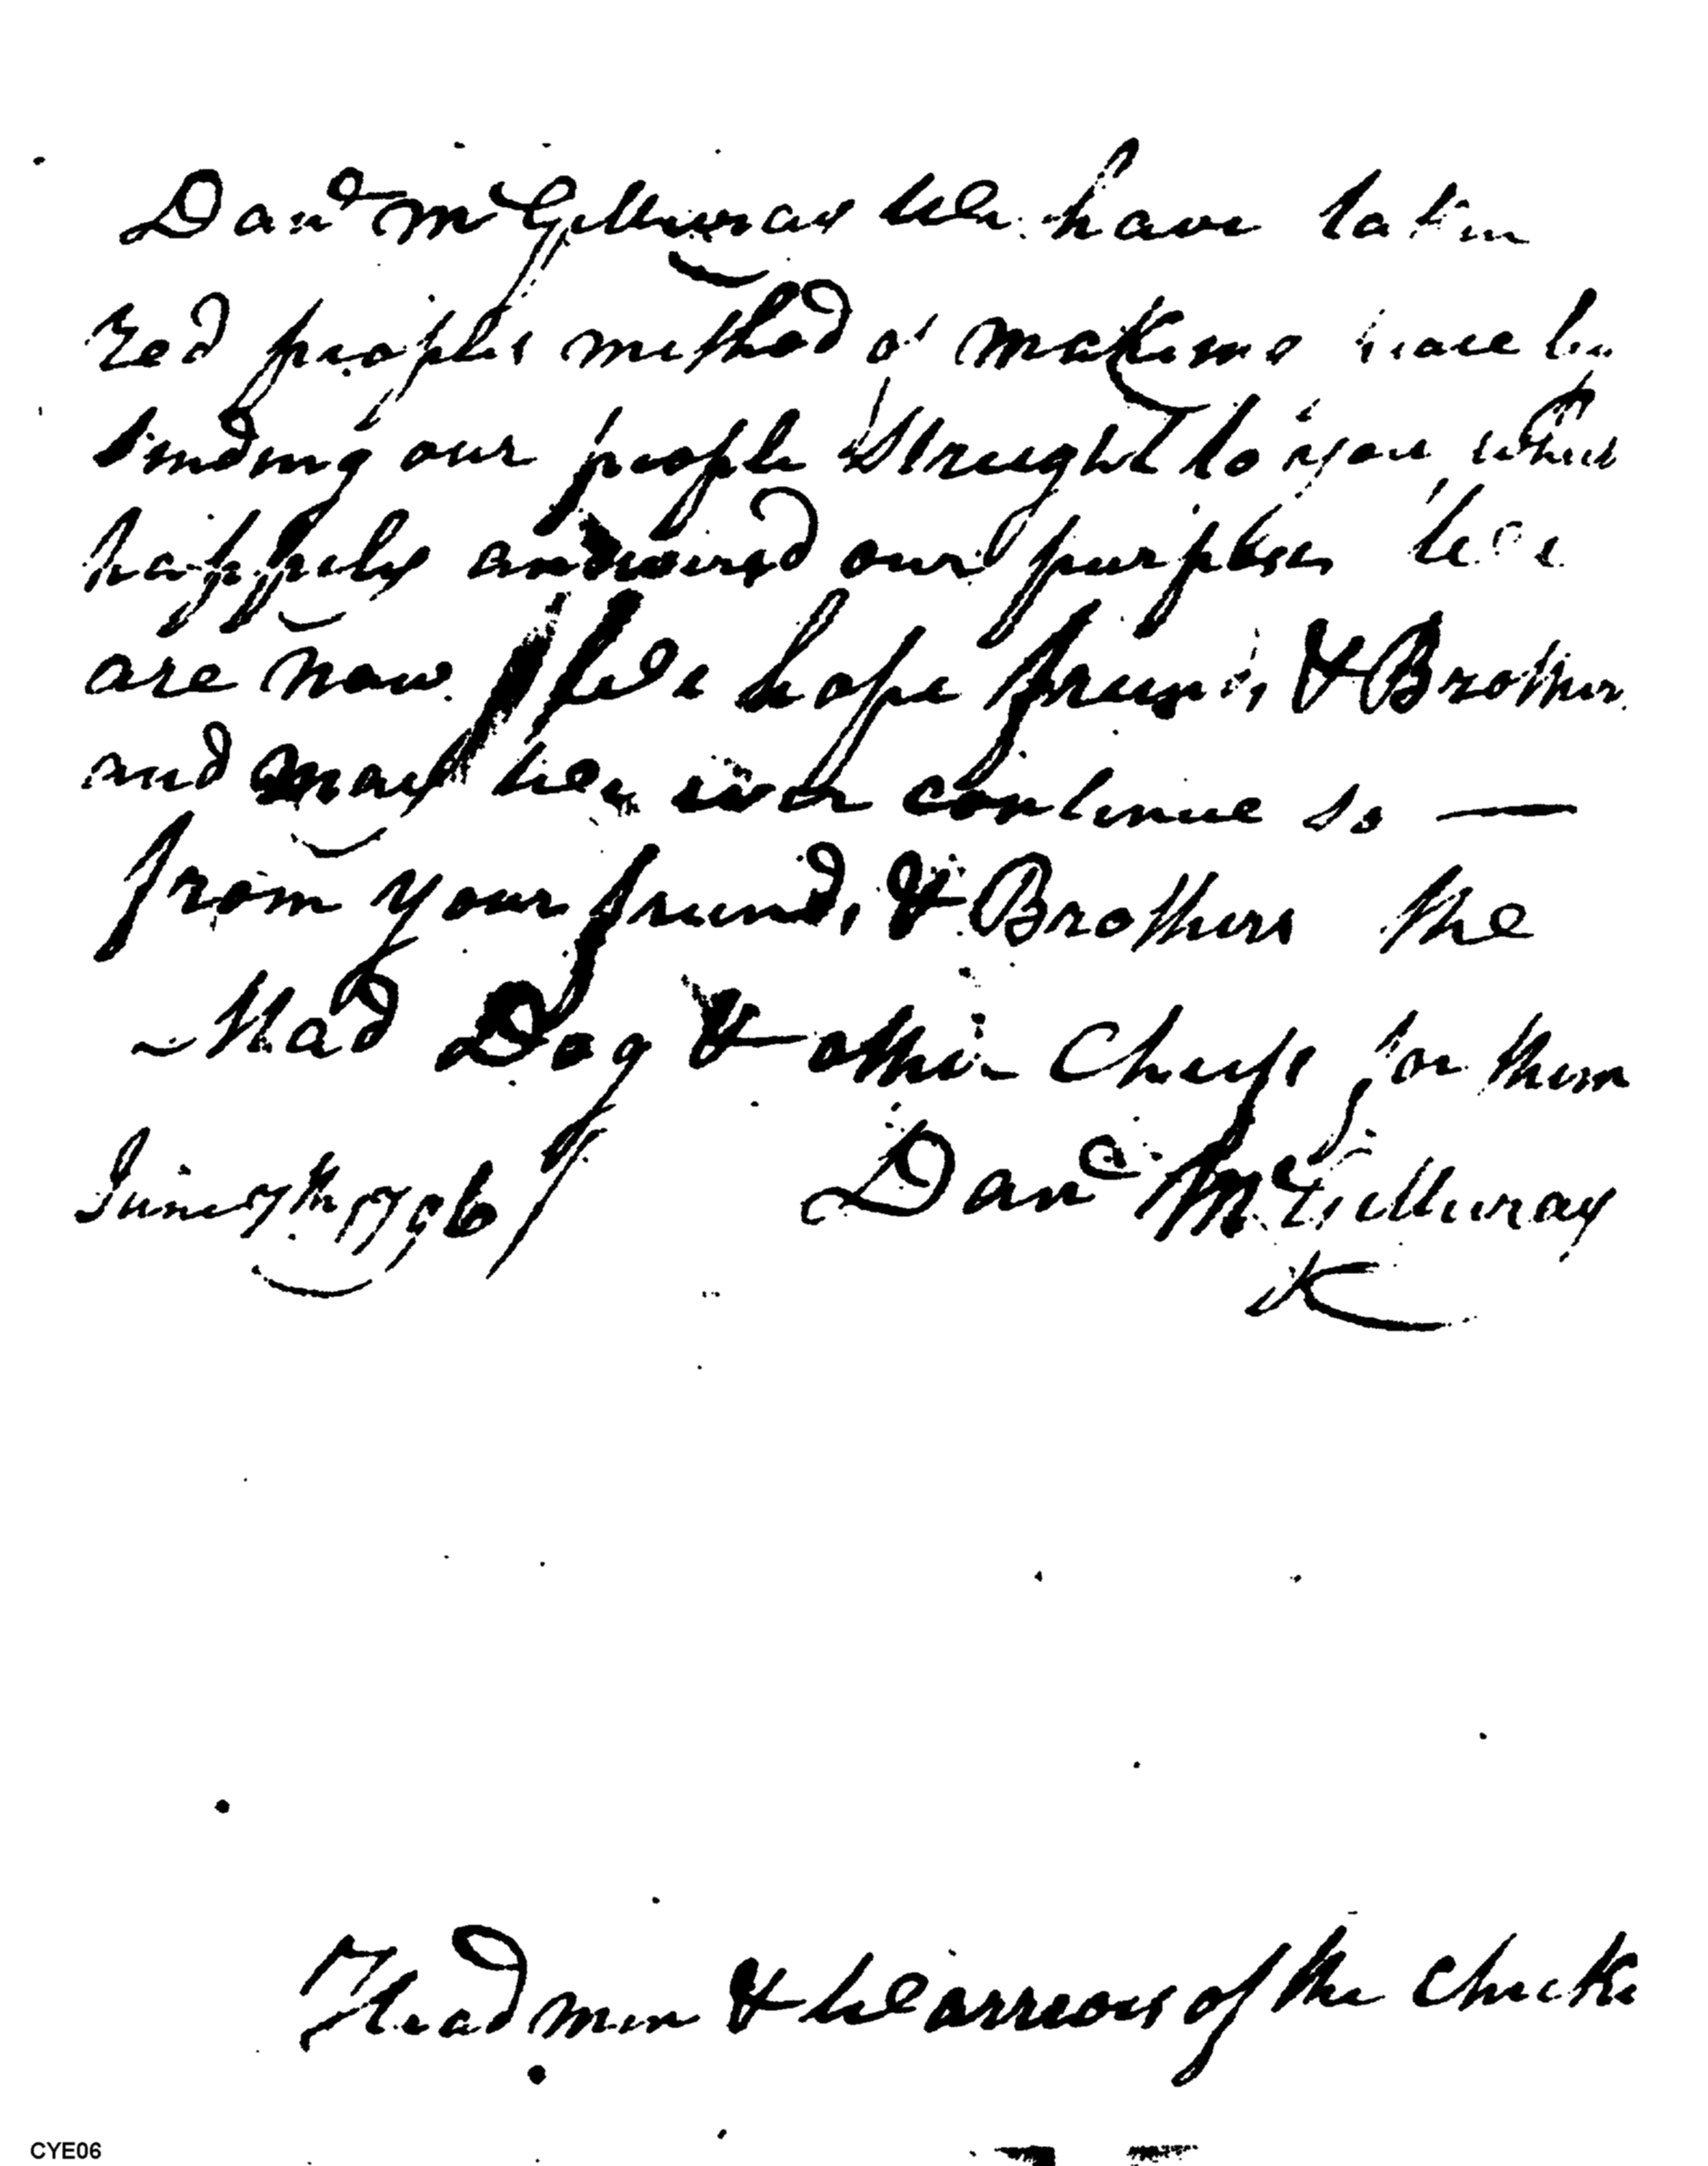 Dan<sup>d</sup> McGillivray We have taken
red peoples method of making peace by
sending our people streight to you which
happely answered our purposes We
are now We hope friends & Brothers
and may hey ever continue so —
from your friends & Brothers the
Mad Dog & other Chiefs for them
June 7th 1796 Dan<sup>d</sup> McGillivray
Headmen & Warreors of the Checke
CYE06